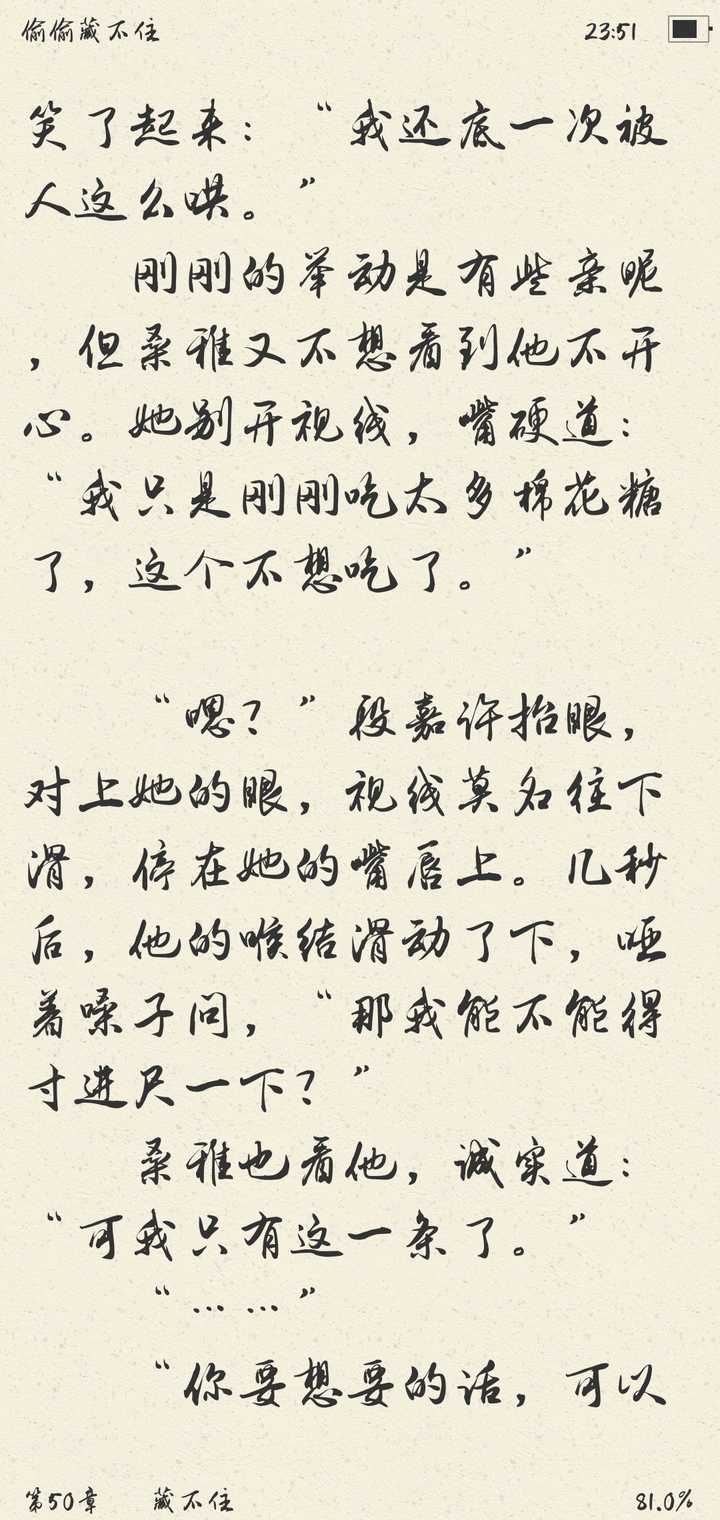 偷偷藏不住 23:51
笑了起来：“我还底一次被
人这么哄。”
刚刚的举动是有些亲昵
，但桑稚又不想看到他不开
心。她别开视线，嘴硬道：
“我只是刚刚吃太多棉花糖
了，这个不想吃了。”
“嗯？”段嘉许抬眼，
对上她的眼，视线莫名往下
滑，停在她的嘴唇上。几秒
后，他的喉结滑动了下，哑
着嗓子问，“那我能不能得
寸进尺一下？”
桑稚也看他，诚实道：
“可我只有这一条了。”
“……”
“你要想要的话，可以
第50章 藏不住 81.0%